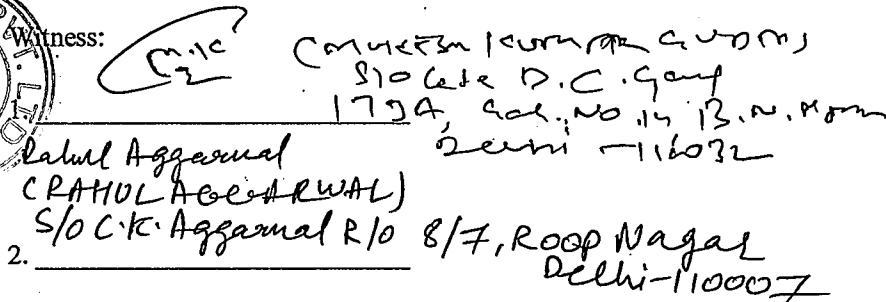 PVT. LTD
Witness:
(MUKESH KUMAR GUPTA)
S/o Late D.C. Garg
1.
179A, Gal. No. 14 B.N.
Delhi - 110032
Rahul Aggarwal
(RAHUL AGGARWAL)
S/o C.K. Aggarwal R/o 8/7, ROOP Nagar
2.
Delhi-110007